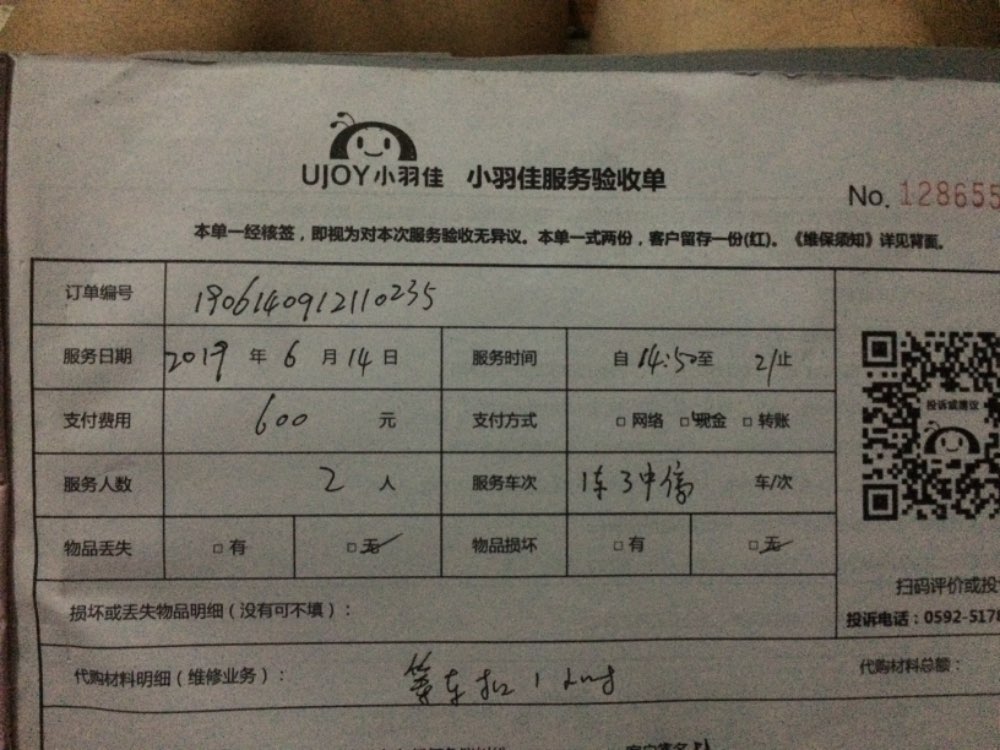 UJOY小羽佳 小羽佳服务验收单
No. 128655
本单一经核签，即视为对本次服务验收无异议。本单一式两份，客户留存一份(红)。《维保须知》详见背面。
订单编号 1906140912110235
服务日期 2019 年 6 月 14 日 服务时间 自 14:50 至 21 止
支付费用 600 元 支付方式 □ 网络 □ 现金 □ 转账
投诉或建议
服务人数 2 人 服务车次 车/次
物品丢失 □ 有 □ 无 物品损坏 □ 有 □ 无
损坏或丢失物品明细（没有可不填）：
扫码评价或投
投诉电话：0592-5178
代购材料明细（维修业务）： 代购材料总额：